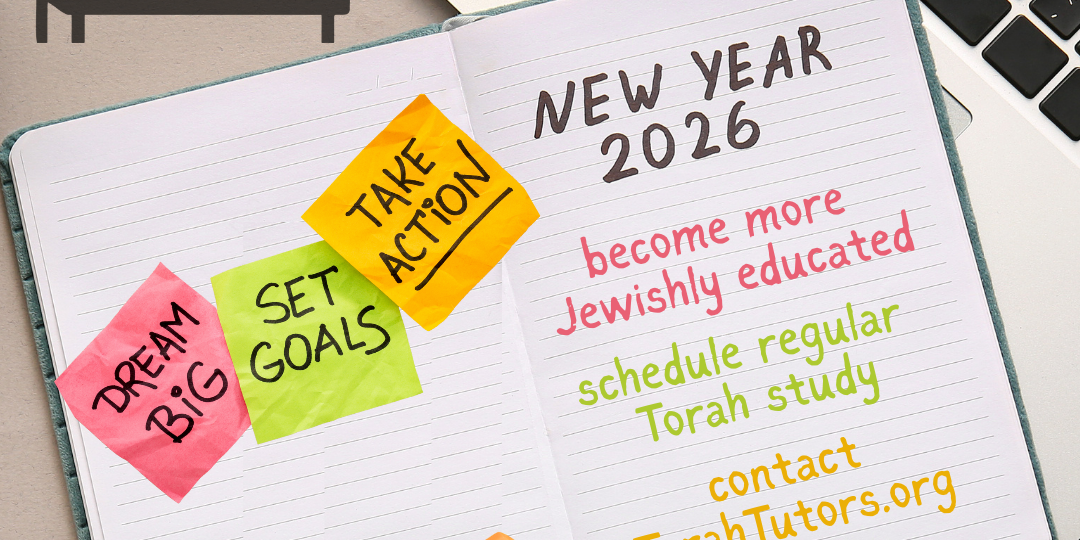 DREAM
BiG
SET
GOALS
TAKE
ACTiON
NEW YEAR
2026
become more
Jewishly educated
schedule regular
Torah study
contact
TorahTutors.org